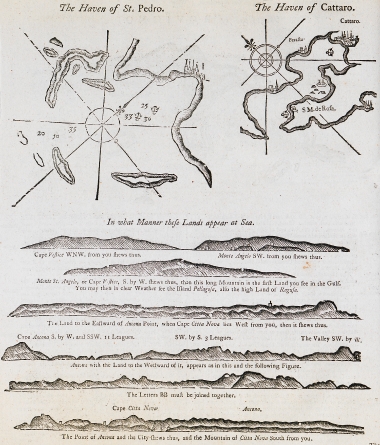 The Haven of St. Pedro.
The Haven of Cattaro.
Cattaro.
S. M. de Rosa.
25
33 30
20 30 35
In what Manner these Lands appear at Sea.
Cape Vestice WNW. from you shews thus.
Monte Angelo SW. from you shews thus.
Monte St. Angelo, or Cape Vestice, S. by W. shews thus, then this long Mountain is the first Land you see in the Gulf.
You may then in clear Weather see the Island Pelagosa, also the high Land of Ragusa.
The Land to the Eastward of Ancona Point, when Cape Citta Nova lies West from you, then it shews thus.
Cape Ancona S. by W. and SSW. 11 Leagues.
SW. by S. 3 Leagues.
The Valley SW. by W.
Ancona with the Land to the Westward of it, appears as in this and the following Figure.
The Letters BB must be joined together.
Cape Citta Nova.
Ancona.
The Point of Ancona and the City shews thus, and the Mountain of Citta Nova South from you.